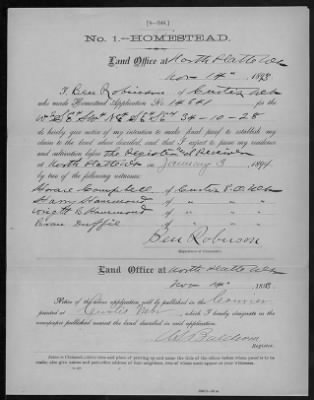 [4—348.]
No. 1.—HOMESTEAD.
Land Office at North Platte Neb
Nov 14th 1893
I, Ben Robinson of Curtis Neb
who made Homestead Application No. for the
34-10-28
do hereby give notice of my intention to make final proof to establish
my claim to the land above described, and that I expect to prove my residence
and cultivation before the Register and Receiver
at North Platte Neb on January 3 1894
by two of the following witnesses:
Horace Campbell of Curtis Neb
Harry Hammond of " " "
Wright E Hammond of " " "
of " " "
Ben Robinson
Land Office at North Platte Neb
Nov 14th 1893
Notice of the above application will be published in the Courier
printed at Curtis Neb, which I hereby designate as the
newspaper published nearest the land described in said application.
Register.